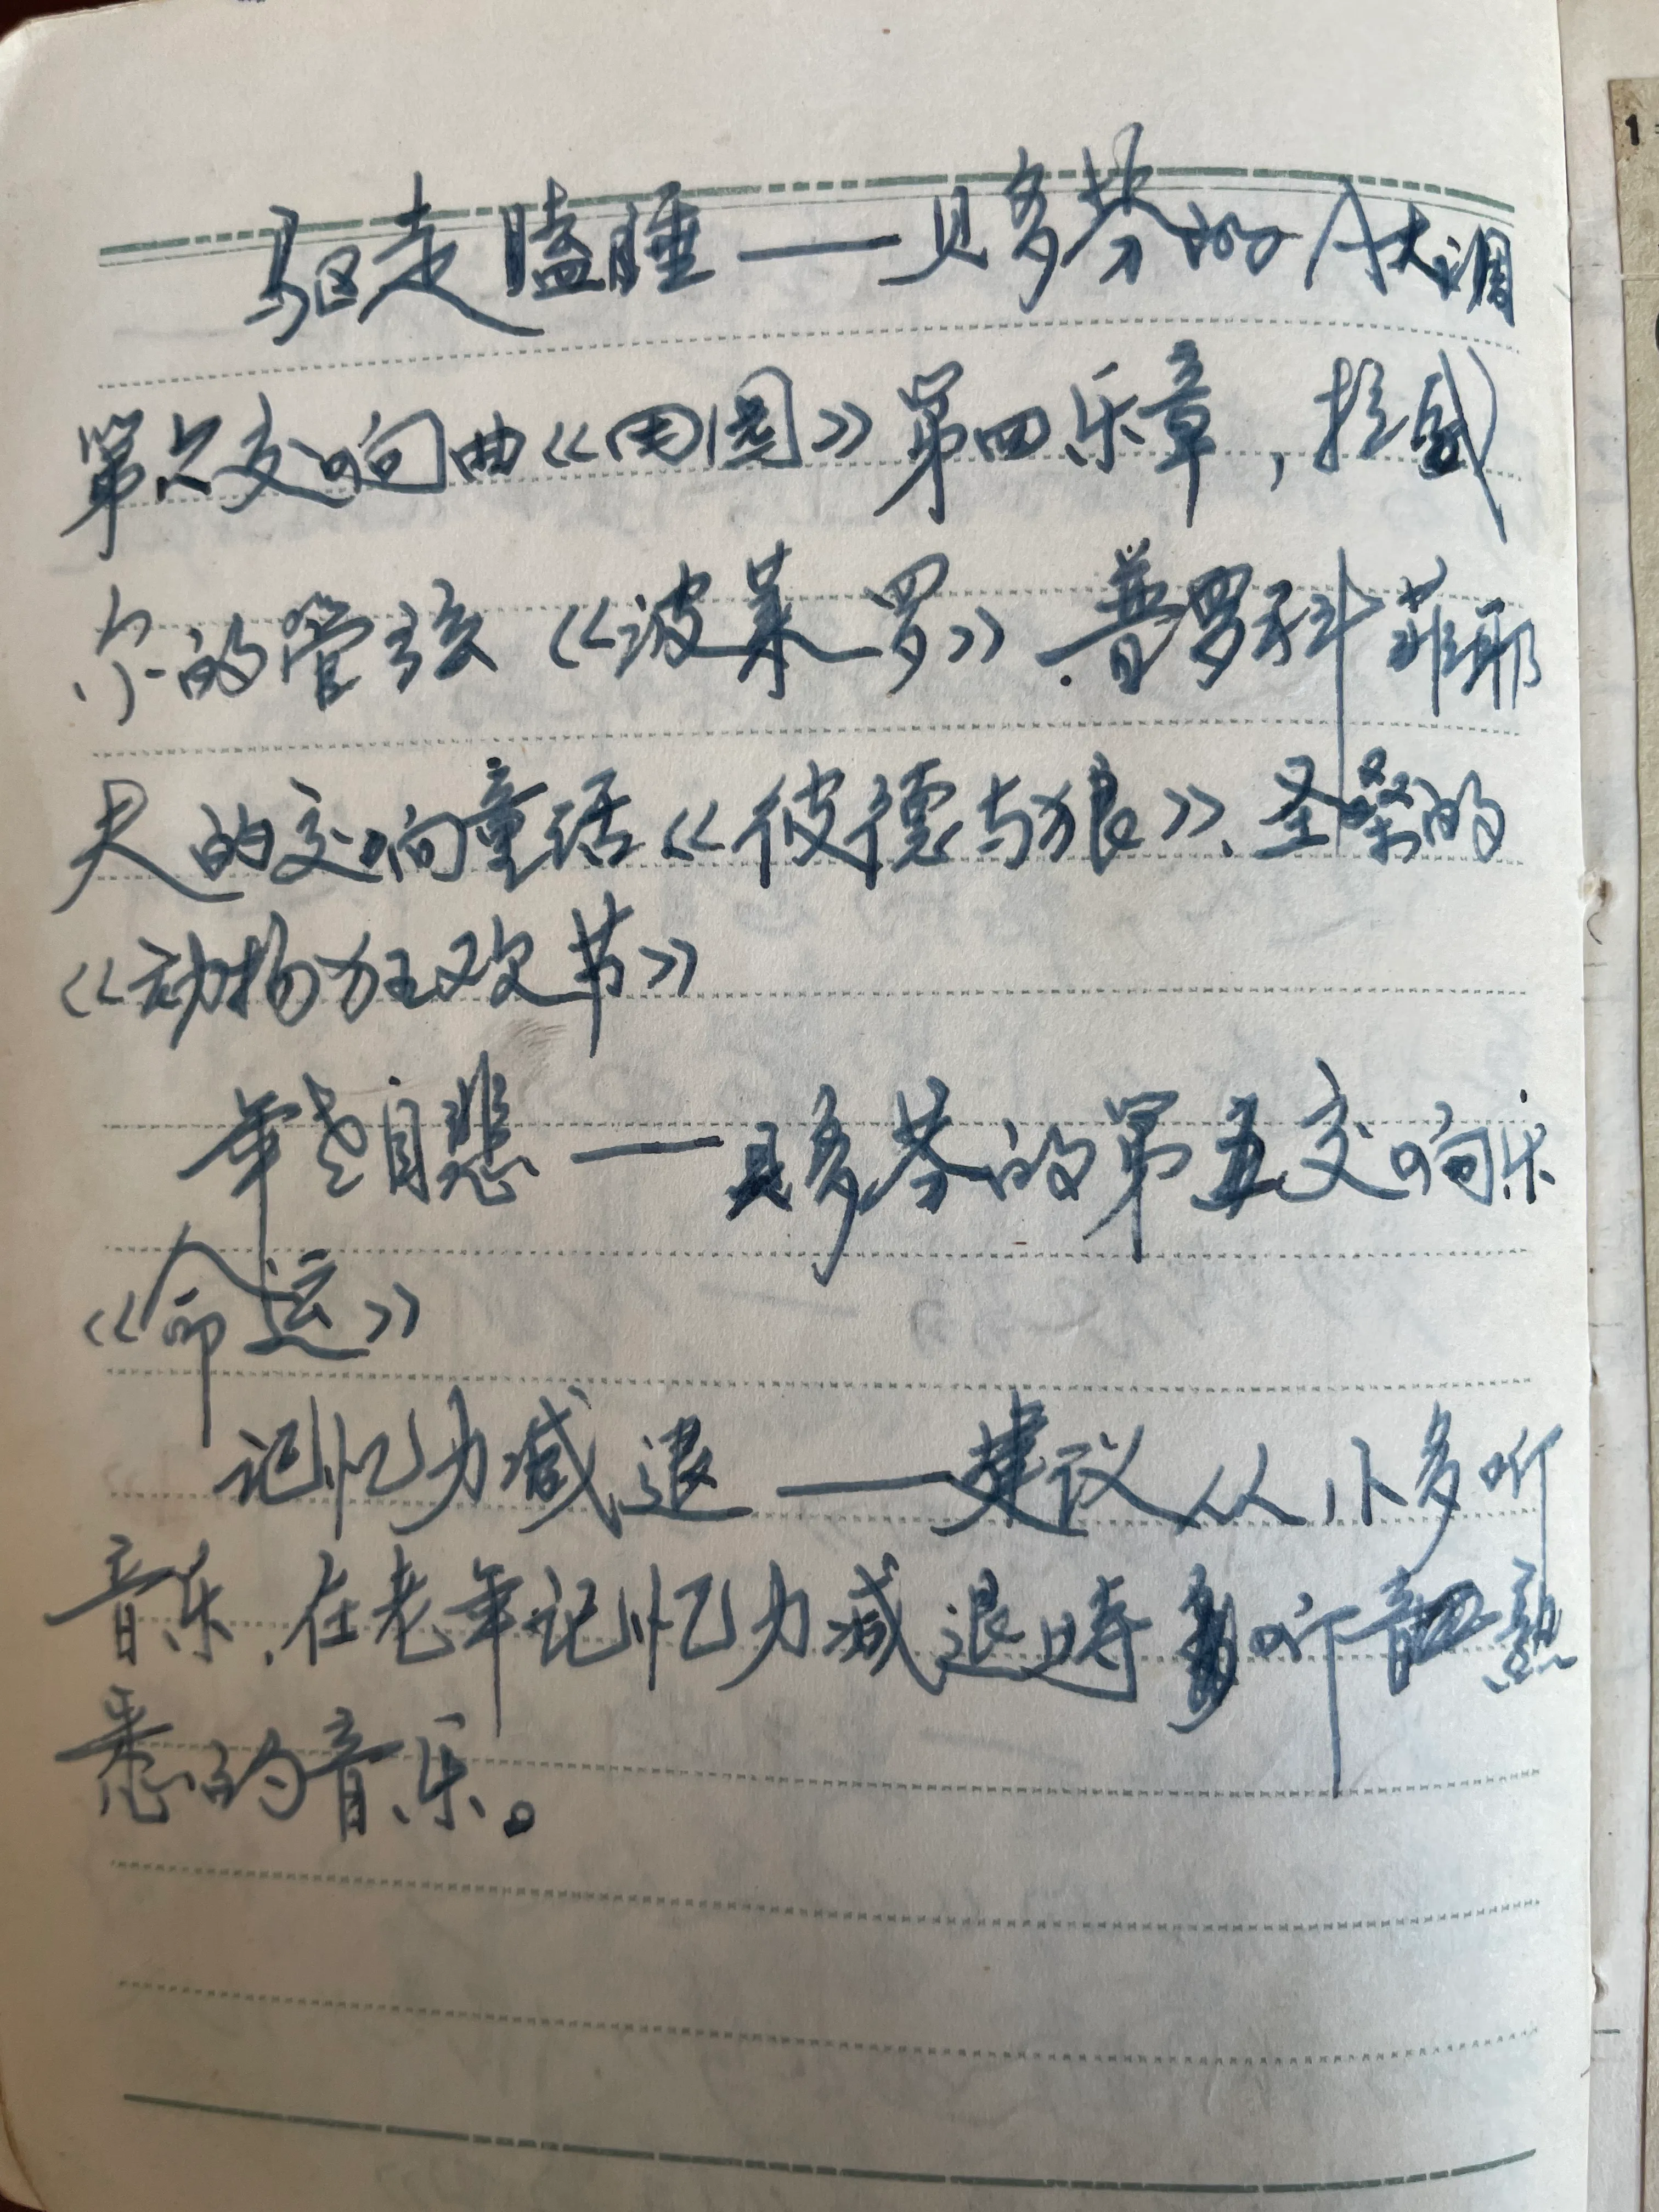 驱走瞌睡——贝多芬的A大调
第六交响曲《田园》第四乐章，拉威
尔的管弦《波莱罗》.普罗科菲耶
夫的交响童话《彼德与狼》、圣桑的
《动物狂欢节》
年老自悲——贝多芬的第五交响乐
《命运》
记忆力减退——建议从小多听
音乐,在老年记忆力减退时多听熟
悉的音乐。
1